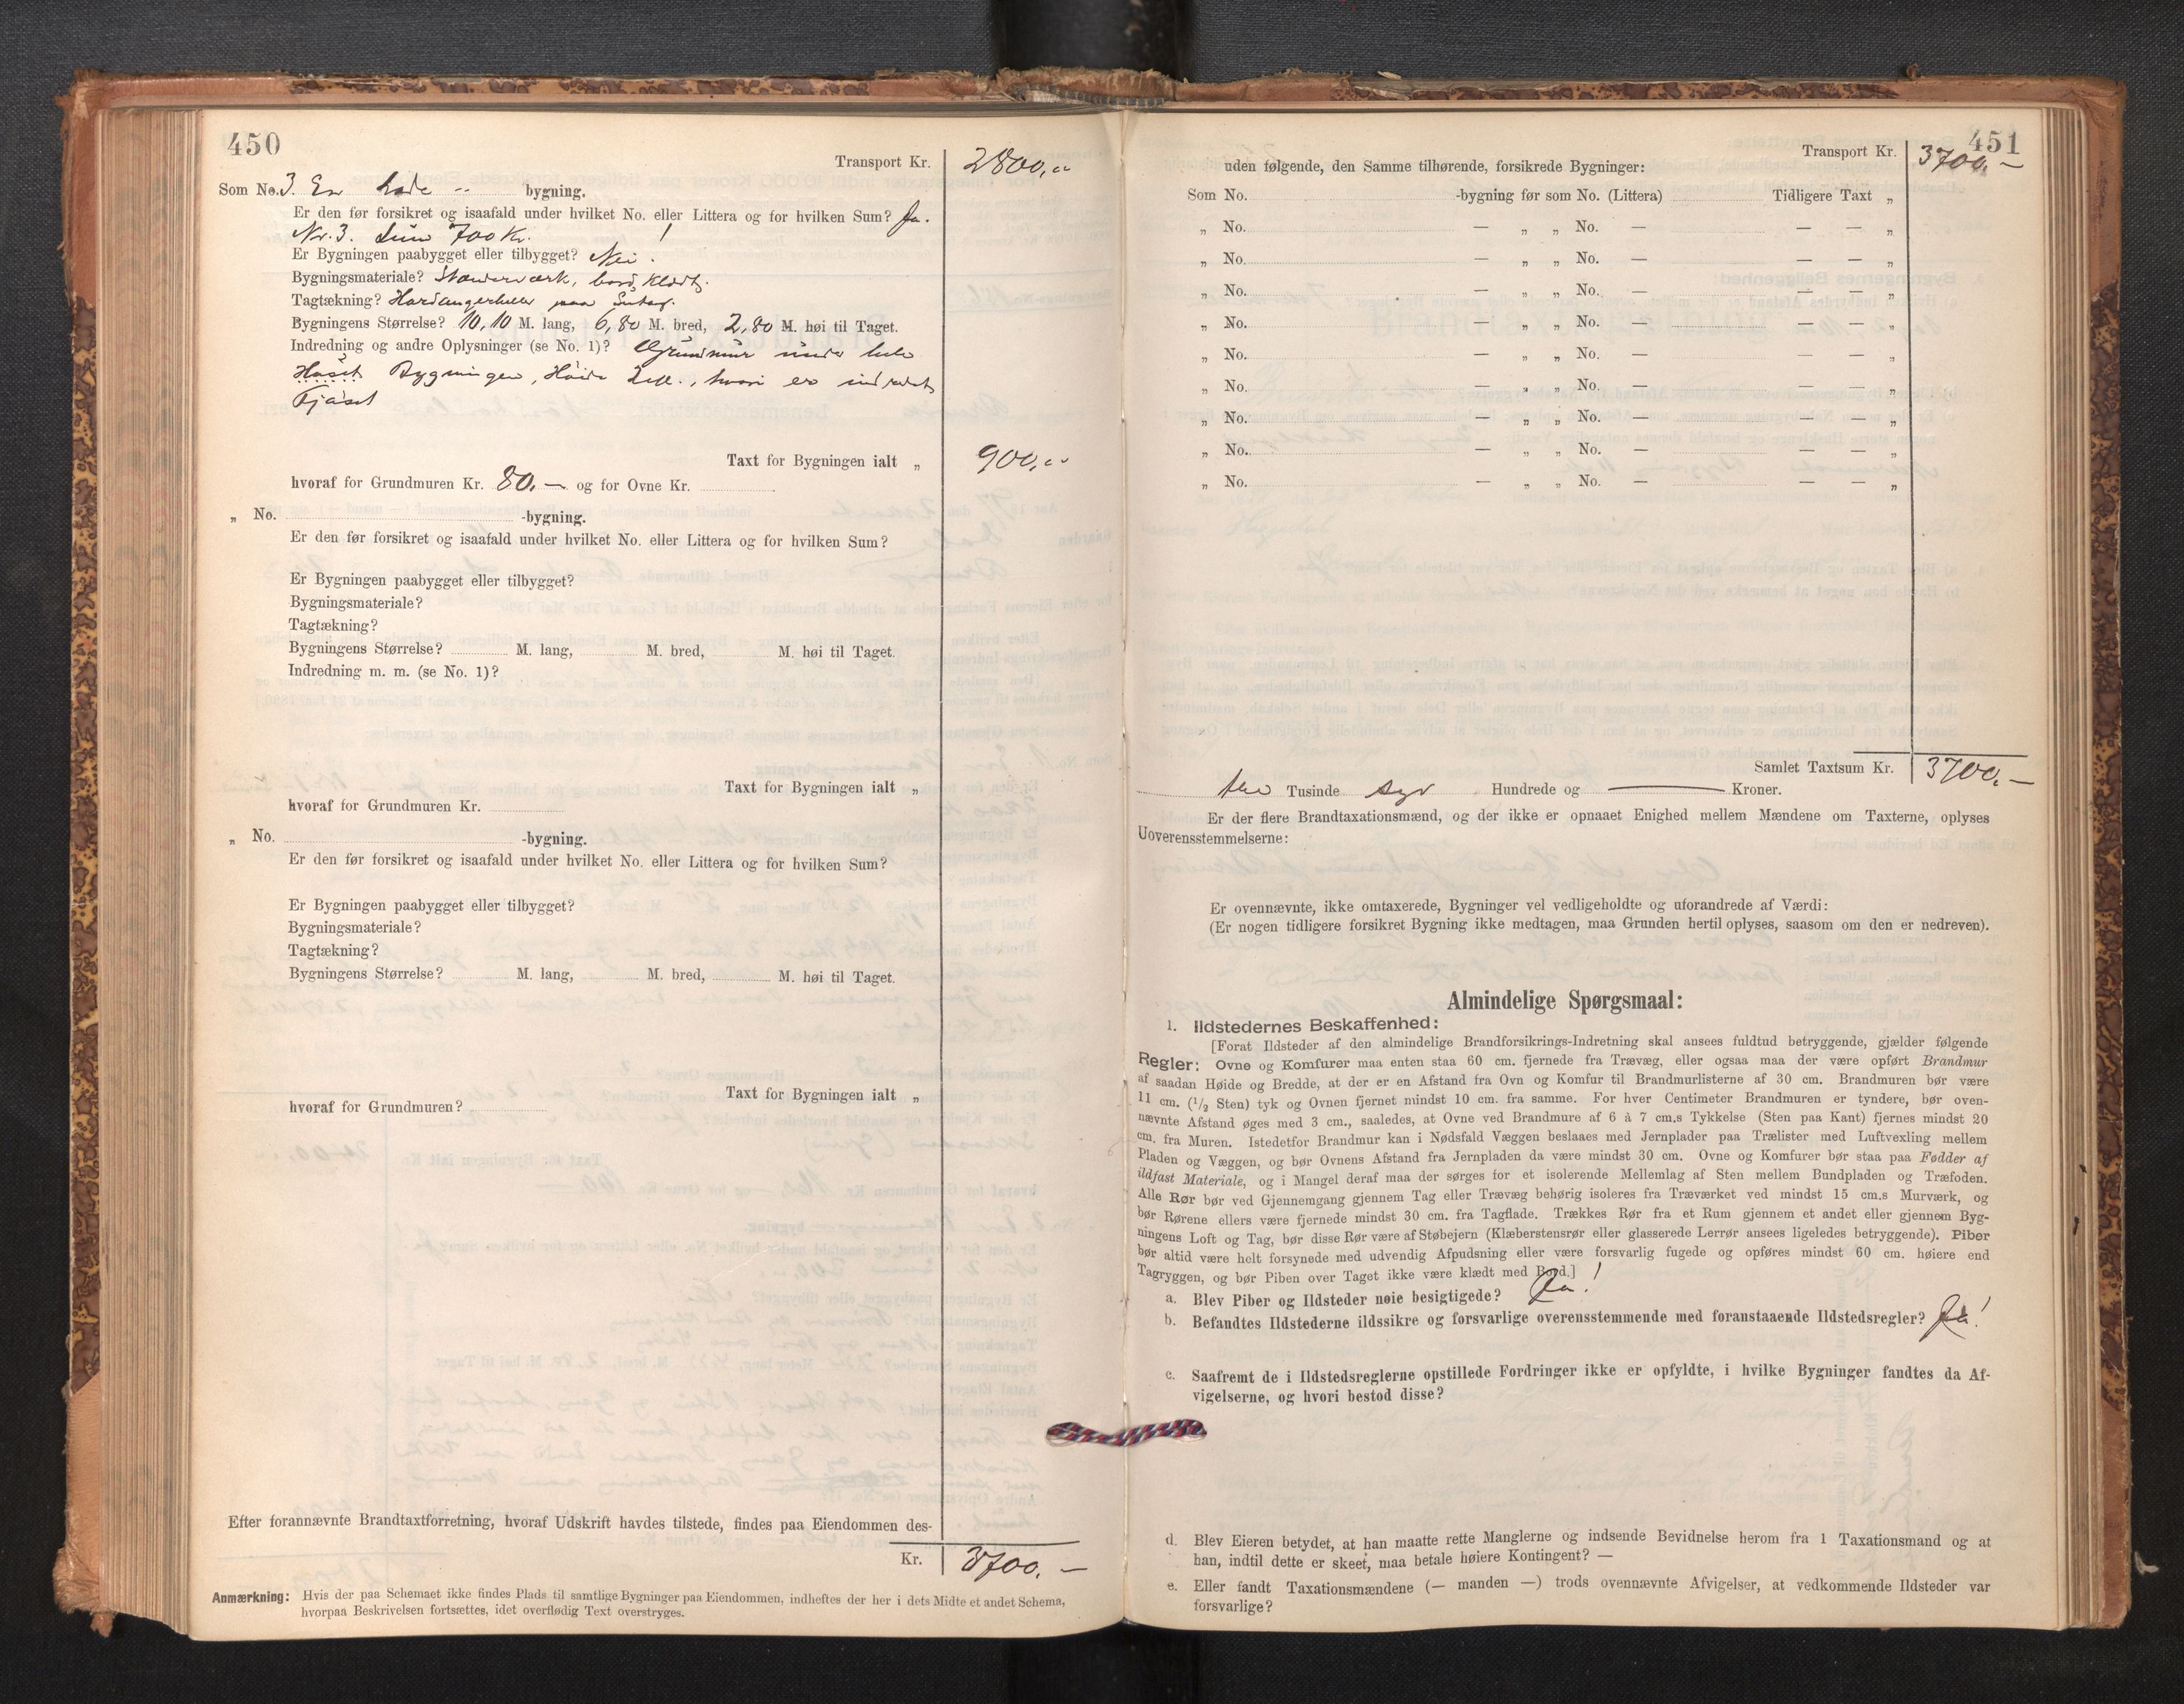 450
Transport Kr. 2800,"
Som No. 3. En Lade -- bygning.
Er den før forsikret og isaafald under hvilket No. eller Littera og for hvilken Sum? Ja.
Nr. 3. Sum 700 Kr.
Er Bygningen paabygget eller tilbygget? Nei.
Bygningsmateriale? Stænderværk, bord klædt.
Tagtækning? Hardangerheller paa
Bygningens Størrelse? 10,10 M. lang, 6,80 M. bred, 2,80 M. høi til Taget.
Indredning og andre Oplysninger (se No. 1)? Grundmur under hele
Huset Bygningen, Høide , hvori er indredet
Fjøset
Taxt for Bygningen ialt „ 900,"
hvoraf for Grundmuren Kr. 80.— og for Ovne Kr.
„ No. -bygning.
Er den før forsikret og isaafald under hvilket No. eller Littera og for hvilken Sum?
Er Bygningen paabygget eller tilbygget?
Bygningsmateriale?
Tagtækning?
Bygningens Størrelse? M. lang, M. bred, M. høi til Taget.
Indredning m. m. (se No. 1)?
Taxt for Bygningen ialt „
hvoraf for Grundmuren Kr.
„ No. -bygning.
Er den før forsikret og isaafald under hvilket No. eller Littera og for hvilken Sum?
Er Bygningen paabygget eller tilbygget?
Bygningsmateriale?
Tagtækning?
Bygningens Størrelse? M. lang, M. bred, M. høi til Taget.
Taxt for Bygningen ialt „
hvoraf for Grundmuren?
Efter forannævnte Brandtaxtforretning, hvoraf Udskrift havdes tilstede, findes paa Eiendommen des-
Kr. 3700.—
Anmærkning: Hvis der paa Schemaet ikke findes Plads til samtlige Bygninger paa Eiendommen, indheftes der her i dets Midte et andet Schema,
hvorpaa Beskrivelsen fortsættes, idet overflødig Text overstryges.
451
Transport Kr. 3700,—
uden følgende, den Samme tilhørende, forsikrede Bygninger:
Som No. -bygning før som No. (Littera) Tidligere Taxt „
„ No. — „ „ No. — — — „
„ No. — „ „ No. — — — „
„ No. — „ „ No. — — — „
„ No. — „ „ No. — — — „
„ No. — „ „ No. — — — „
„ No. — „ „ No. — — — „
„ No. — „ „ No. — — — „
„ No. — „ „ No. — — — „
„ No. — „ „ No. — — — „
Samlet Taxtsum Kr. 3700,—
tre Tusinde syv Hundrede og — Kroner.
Er der flere Brandtaxationsmænd, og der ikke er opnaaet Enighed mellem Mændene om Taxterne, oplyses
Uoverensstemmelserne:
Er ovennævnte, ikke omtaxerede, Bygninger vel vedligeholdte og uforandrede af Værdi:
(Er nogen tidligere forsikret Bygning ikke medtagen, maa Grunden hertil oplyses, saasom om den er nedreven).
Almindelige Spørgsmaal:
1. Ildstedernes Beskaffenhed:
[Forat Ildsteder af den almindelige Brandforsikrings-Indretning skal ansees fuldtud betryggende, gjælder følgende
Regler: Ovne og Komfurer maa enten staa 60 cm. fjernede fra Trævæg, eller ogsaa maa der være opført Brandmur
af saadan Høide og Bredde, at der er en Afstand fra Ovn og Komfur til Brandmurlisterne af 30 cm. Brandmuren bør være
11 cm. (1/2 Sten) tyk og Ovnen fjernet mindst 10 cm. fra samme. For hver Centimeter Brandmuren er tyndere, bør oven-
nævnte Afstand øges med 3 cm., saaledes, at Ovne ved Brandmure af 6 à 7 cm.s Tykkelse (Sten paa Kant) fjernes mindst 20
cm. fra Muren. Istedetfor Brandmur kan i Nødsfald Væggen beslaaes med Jernplader paa Trælister med Luftvexling mellem
Pladen og Væggen, og bør Ovnens Afstand fra Jernpladen da være mindst 30 cm. Ovne og Komfurer bør staa paa Fødder af
ildfast Materiale, og i Mangel deraf maa der sørges for et isolerende Mellemlag af Sten mellem Bundpladen og Træfoden.
Alle Rør bør ved Gjennemgang gjennem Tag eller Trævæg behørig isoleres fra Træværket ved mindst 15 cm.s Murværk, og
bør Rørene ellers være fjernede mindst 30 cm. fra Tagflade. Trækkes Rør fra et Rum gjennem et andet eller gjennem Byg-
ningens Loft og Tag, bør disse Rør være af Støbejern (Klæberstensrør eller glasserede Lerrør ansees ligeledes betryggende). Piber
bør altid være helt forsynede med udvendig Afpudsning eller være forsvarlig fugede og opføres mindst 60 cm. høiere end
Tagryggen, og bør Piben over Taget ikke være klædt med Bord.]
a. Blev Piber og Ildsteder nøie besigtigede? Ja!
b. Befandtes Ildstederne ildssikre og forsvarlige overensstemmende med foranstaaende Ildstedsregler? Ja!
c. Saafremt de i Ildstedsreglerne opstillede Fordringer ikke er opfyldte, i hvilke Bygninger fandtes da Af-
vigelserne, og hvori bestod disse?
d. Blev Eieren betydet, at han maatte rette Manglerne og indsende Bevidnelse herom fra 1 Taxationsmand og at
han, indtil dette er skeet, maa betale høiere Kontingent? —
e. Eller fandt Taxationsmændene (— manden —) trods ovennævnte Afvigelser, at vedkommende Ildsteder var
forsvarlige?